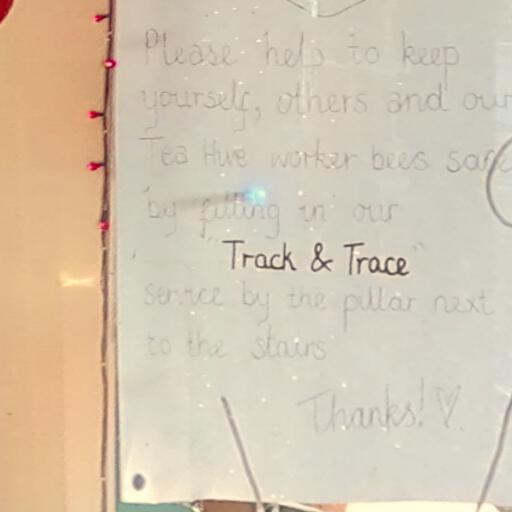 Please help to keep
yourself, others and our
Tea Hive worker bees safe
by filling in our
"Track & Trace"
service by the pillar next
to the stairs
Thanks! ♡